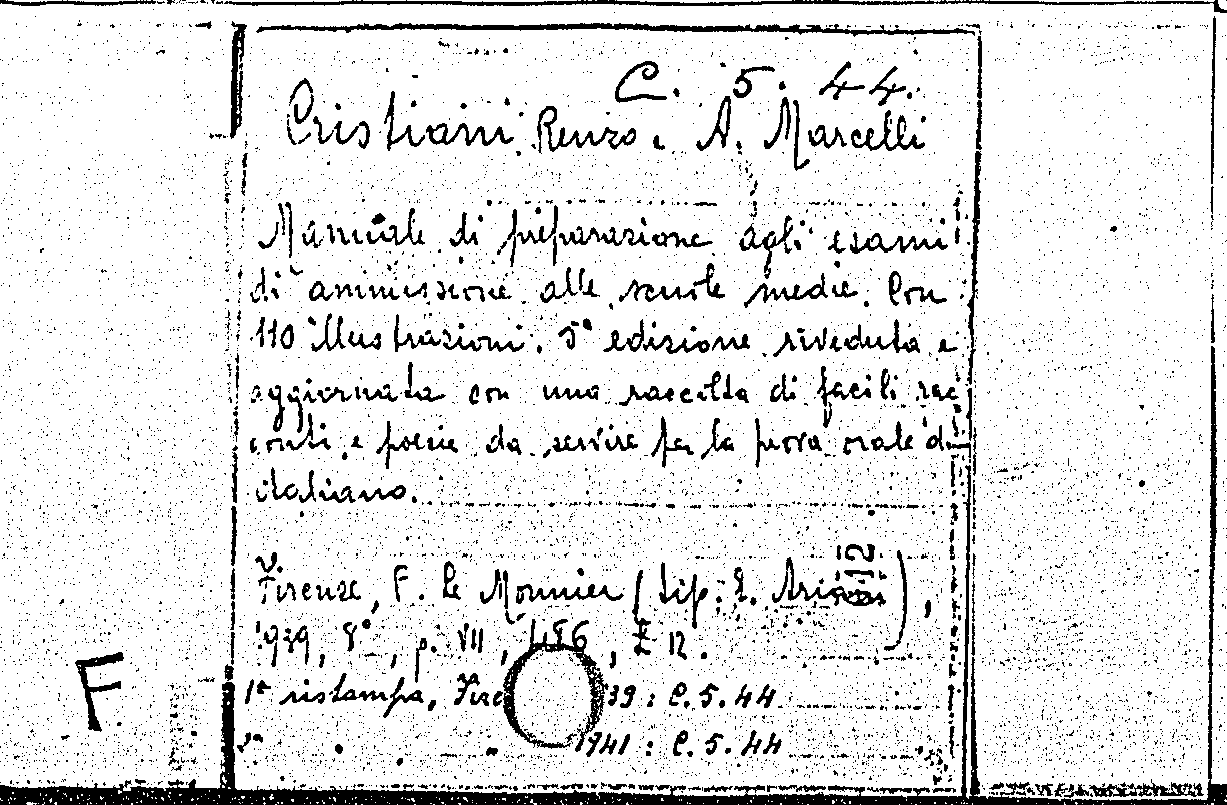 C. 5. 44.
Cristiani Renzo e A. Marcelli
Manuale di preparazione agli esami
di ammissione alle scuole medie. Con
110 illustrazioni. 5ª edizione riveduta e
aggiornata con una raccolta di facili rac
conti e poesie da servire per la prova orale di
italiano.
Firenze, F. Le Monnier (tip. E. Ariani),
1939, 8°, p. VII, 486, £ 12.
1ª ristampa, Fire 39 : C. 5. 44
2ª " " 1941 : C. 5. 44
F